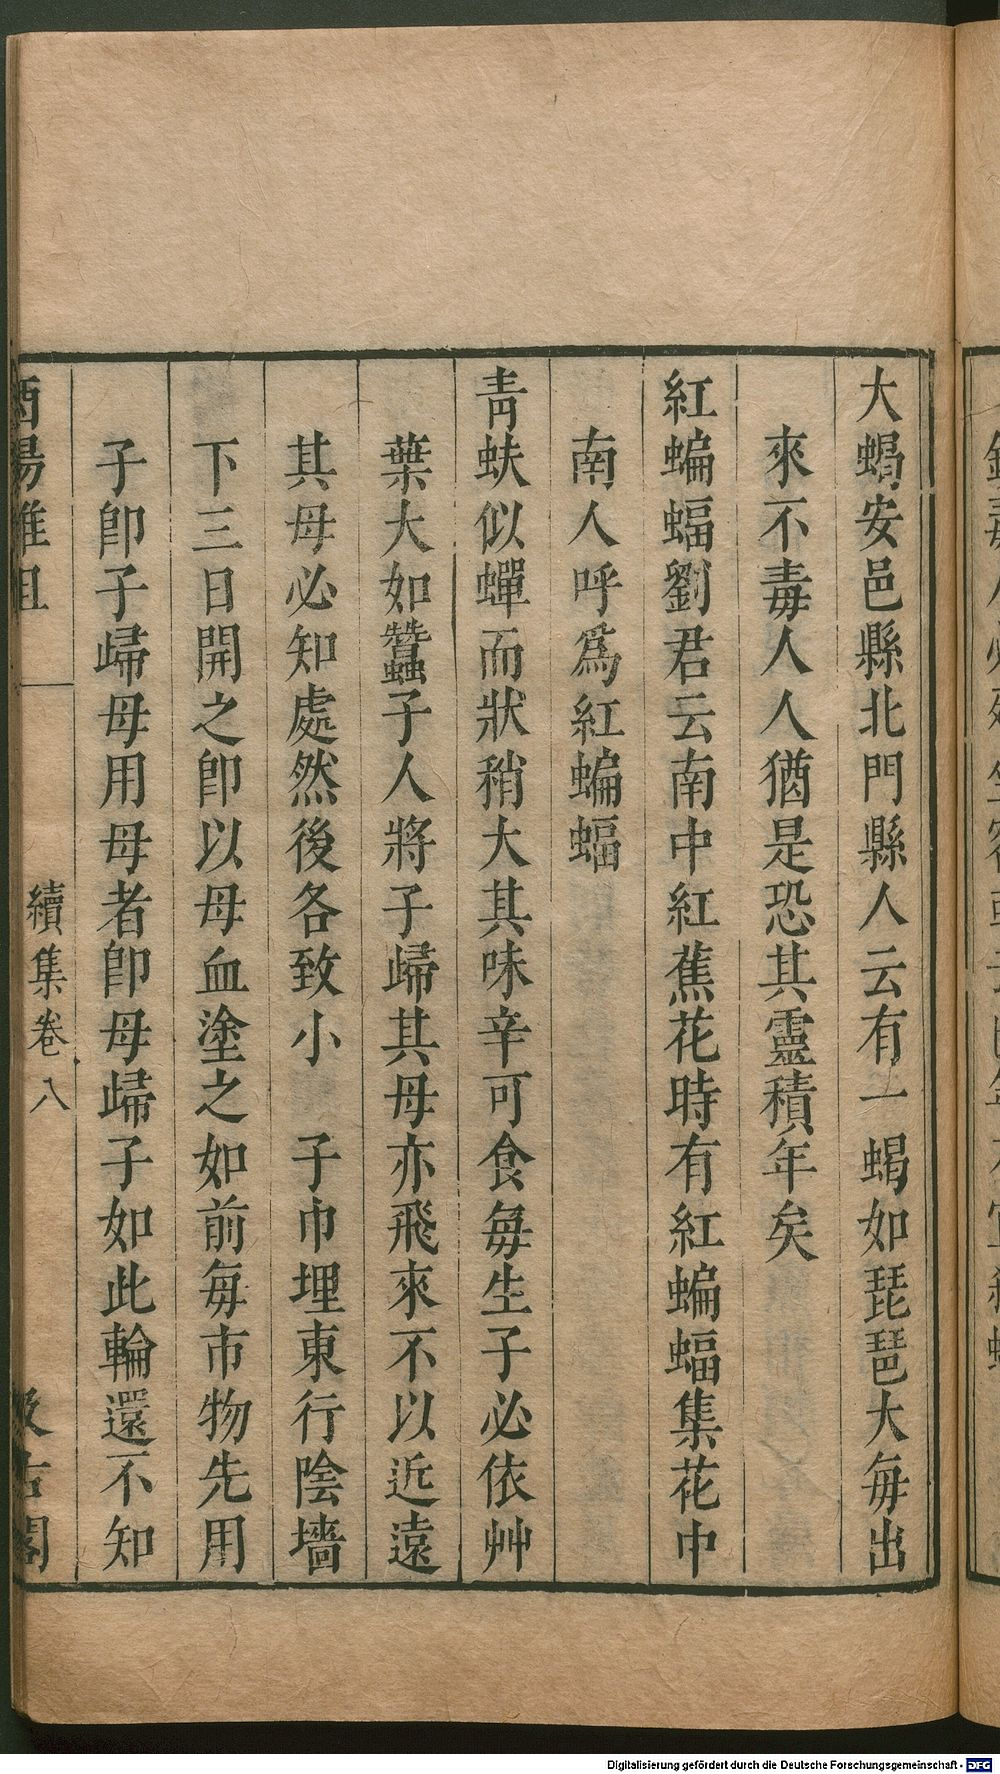 大蝎安邑縣北門縣人云有一蝎如琵琶大每出
來不毒人人猶是恐其靈積年矣
紅蝙蝠劉君云南中紅蕉花時有紅蝙蝠集花中
南人呼爲紅蝙蝠
青蚨似蟬而狀稍大其味辛可食每生子必依艸
葉大如蠶子人將子歸其母亦飛來不以近遠
其母必知處然後各致小 子巾埋東行陰墻
下三日開之卽以母血塗之如前每市物先用
子卽子歸母用母者卽母歸子如此輪還不知
酉陽雜俎 續集卷八 汲古閣
Digitalisierung gefördert durch die Deutsche Forschungsgemeinschaft - DFG